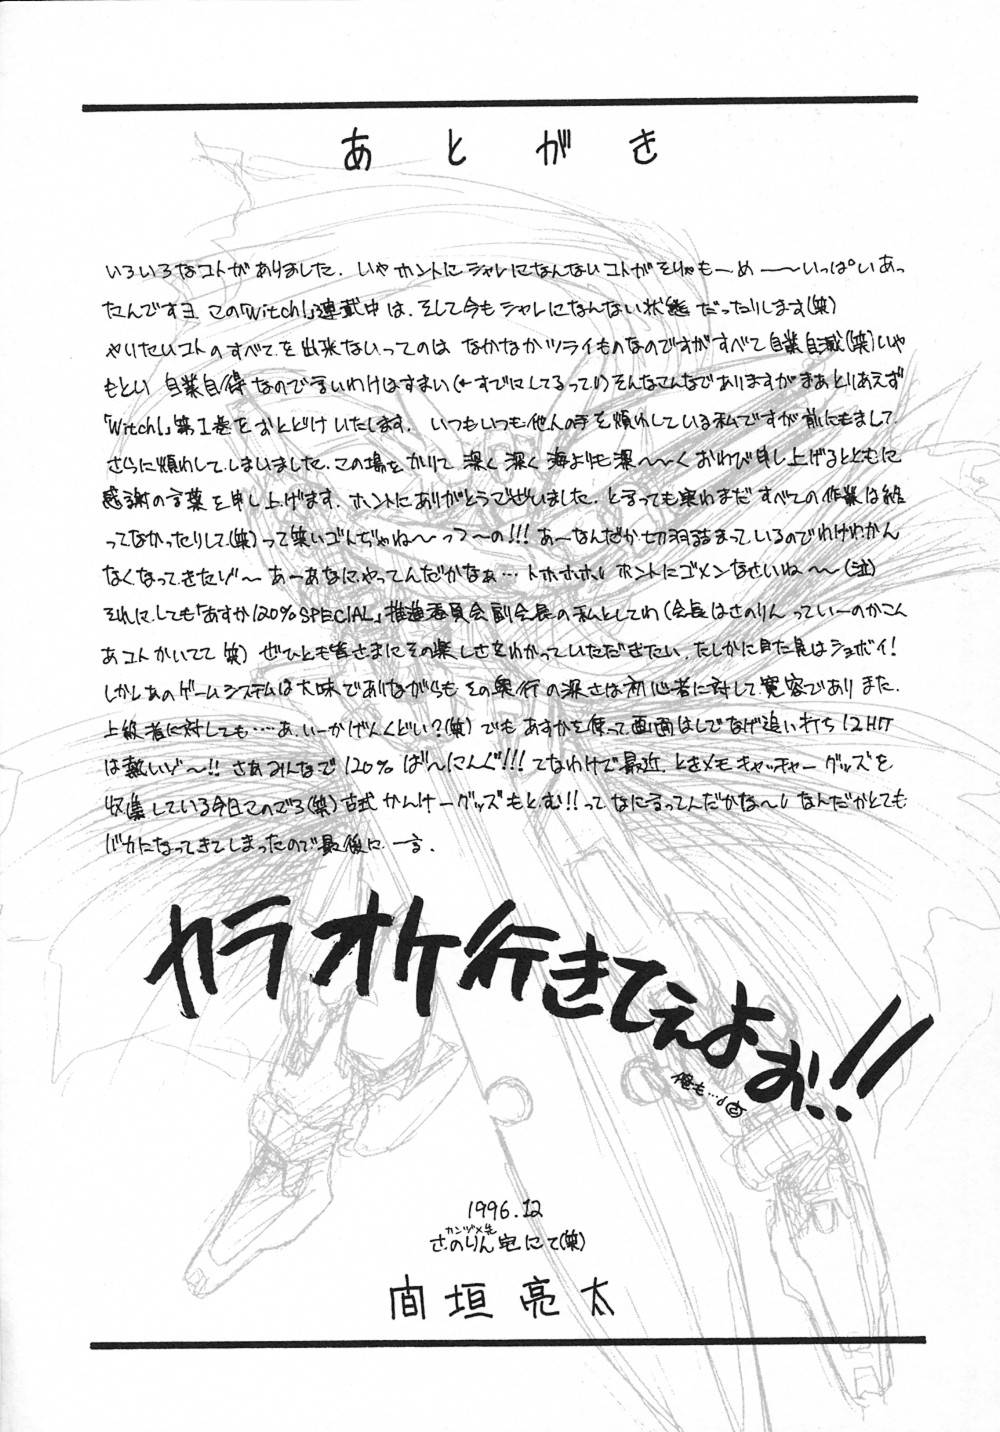 あとがき
いろいろなコトがありました. いやホントにシャレになんないコトがそりゃもーめ――〜いっぱいあっ
たんですヨ この「Witch!」連載中は、そして今もシャレになんない状態だったりします(笑)
やりたいコトのすべてを出来ないってのはなかなかツライものなのですがすべて自業自滅(笑)いや
もとい 自業自得なので言いわけはすまい(←すでにしてるって!)そんなこんなでありますがまあとりあえず
「Witch!」第1巻をおとどけいたします. いつもいつも他人の手を煩わしている私ですが前にもまして
さらに煩わしてしまいました. この場をかりて深く深く海よりも深〜〜くおわび申し上げるとともに
感謝の言葉を申し上げます. ホントにありがとうございました. と言っても実わまだすべての作業は終
ってなかったりして(笑)って笑いゴトぢゃね〜っつ〜の!!! あーなんだか切羽詰まっているのでわけわかん
なくなってきたゾ〜 あーあなにやってんだかなぁ… トホホホ ホントにゴメンなさいね〜〜(泣)
それにしても「あすか120%SPECIAL」推進委員会副会長の私としてわ(会長はさのりんっていーのかこん
なコトかいてて 笑) ぜひとも皆さまにその楽しさをわかっていただきたい. たしかに見た目はショボイ!
しかしあのゲームシステムは大味でありながらもその奥行の深さは初心者に対して寛容でありまた.
上級者に対しても……あ.いーかげんくどい?(笑) でもあすかを使って画面はしでなげ追い打ち12HIT
は熱いゾ〜!! さあみんなで120%ば〜にんぐ!!! てなわけで最近.ときメモキャッチャーグッズを
収集している今日このごろ(笑) 古式かんけーグッズもとむ!!ってなにゆってんだかな〜 なんだかとても
バカになってきてしまったので最後に一言.
カラオケ行きてえよお、!!
俺も…
1996.12
カンヅメ先
さのりん宅にて(笑)
間垣亮太